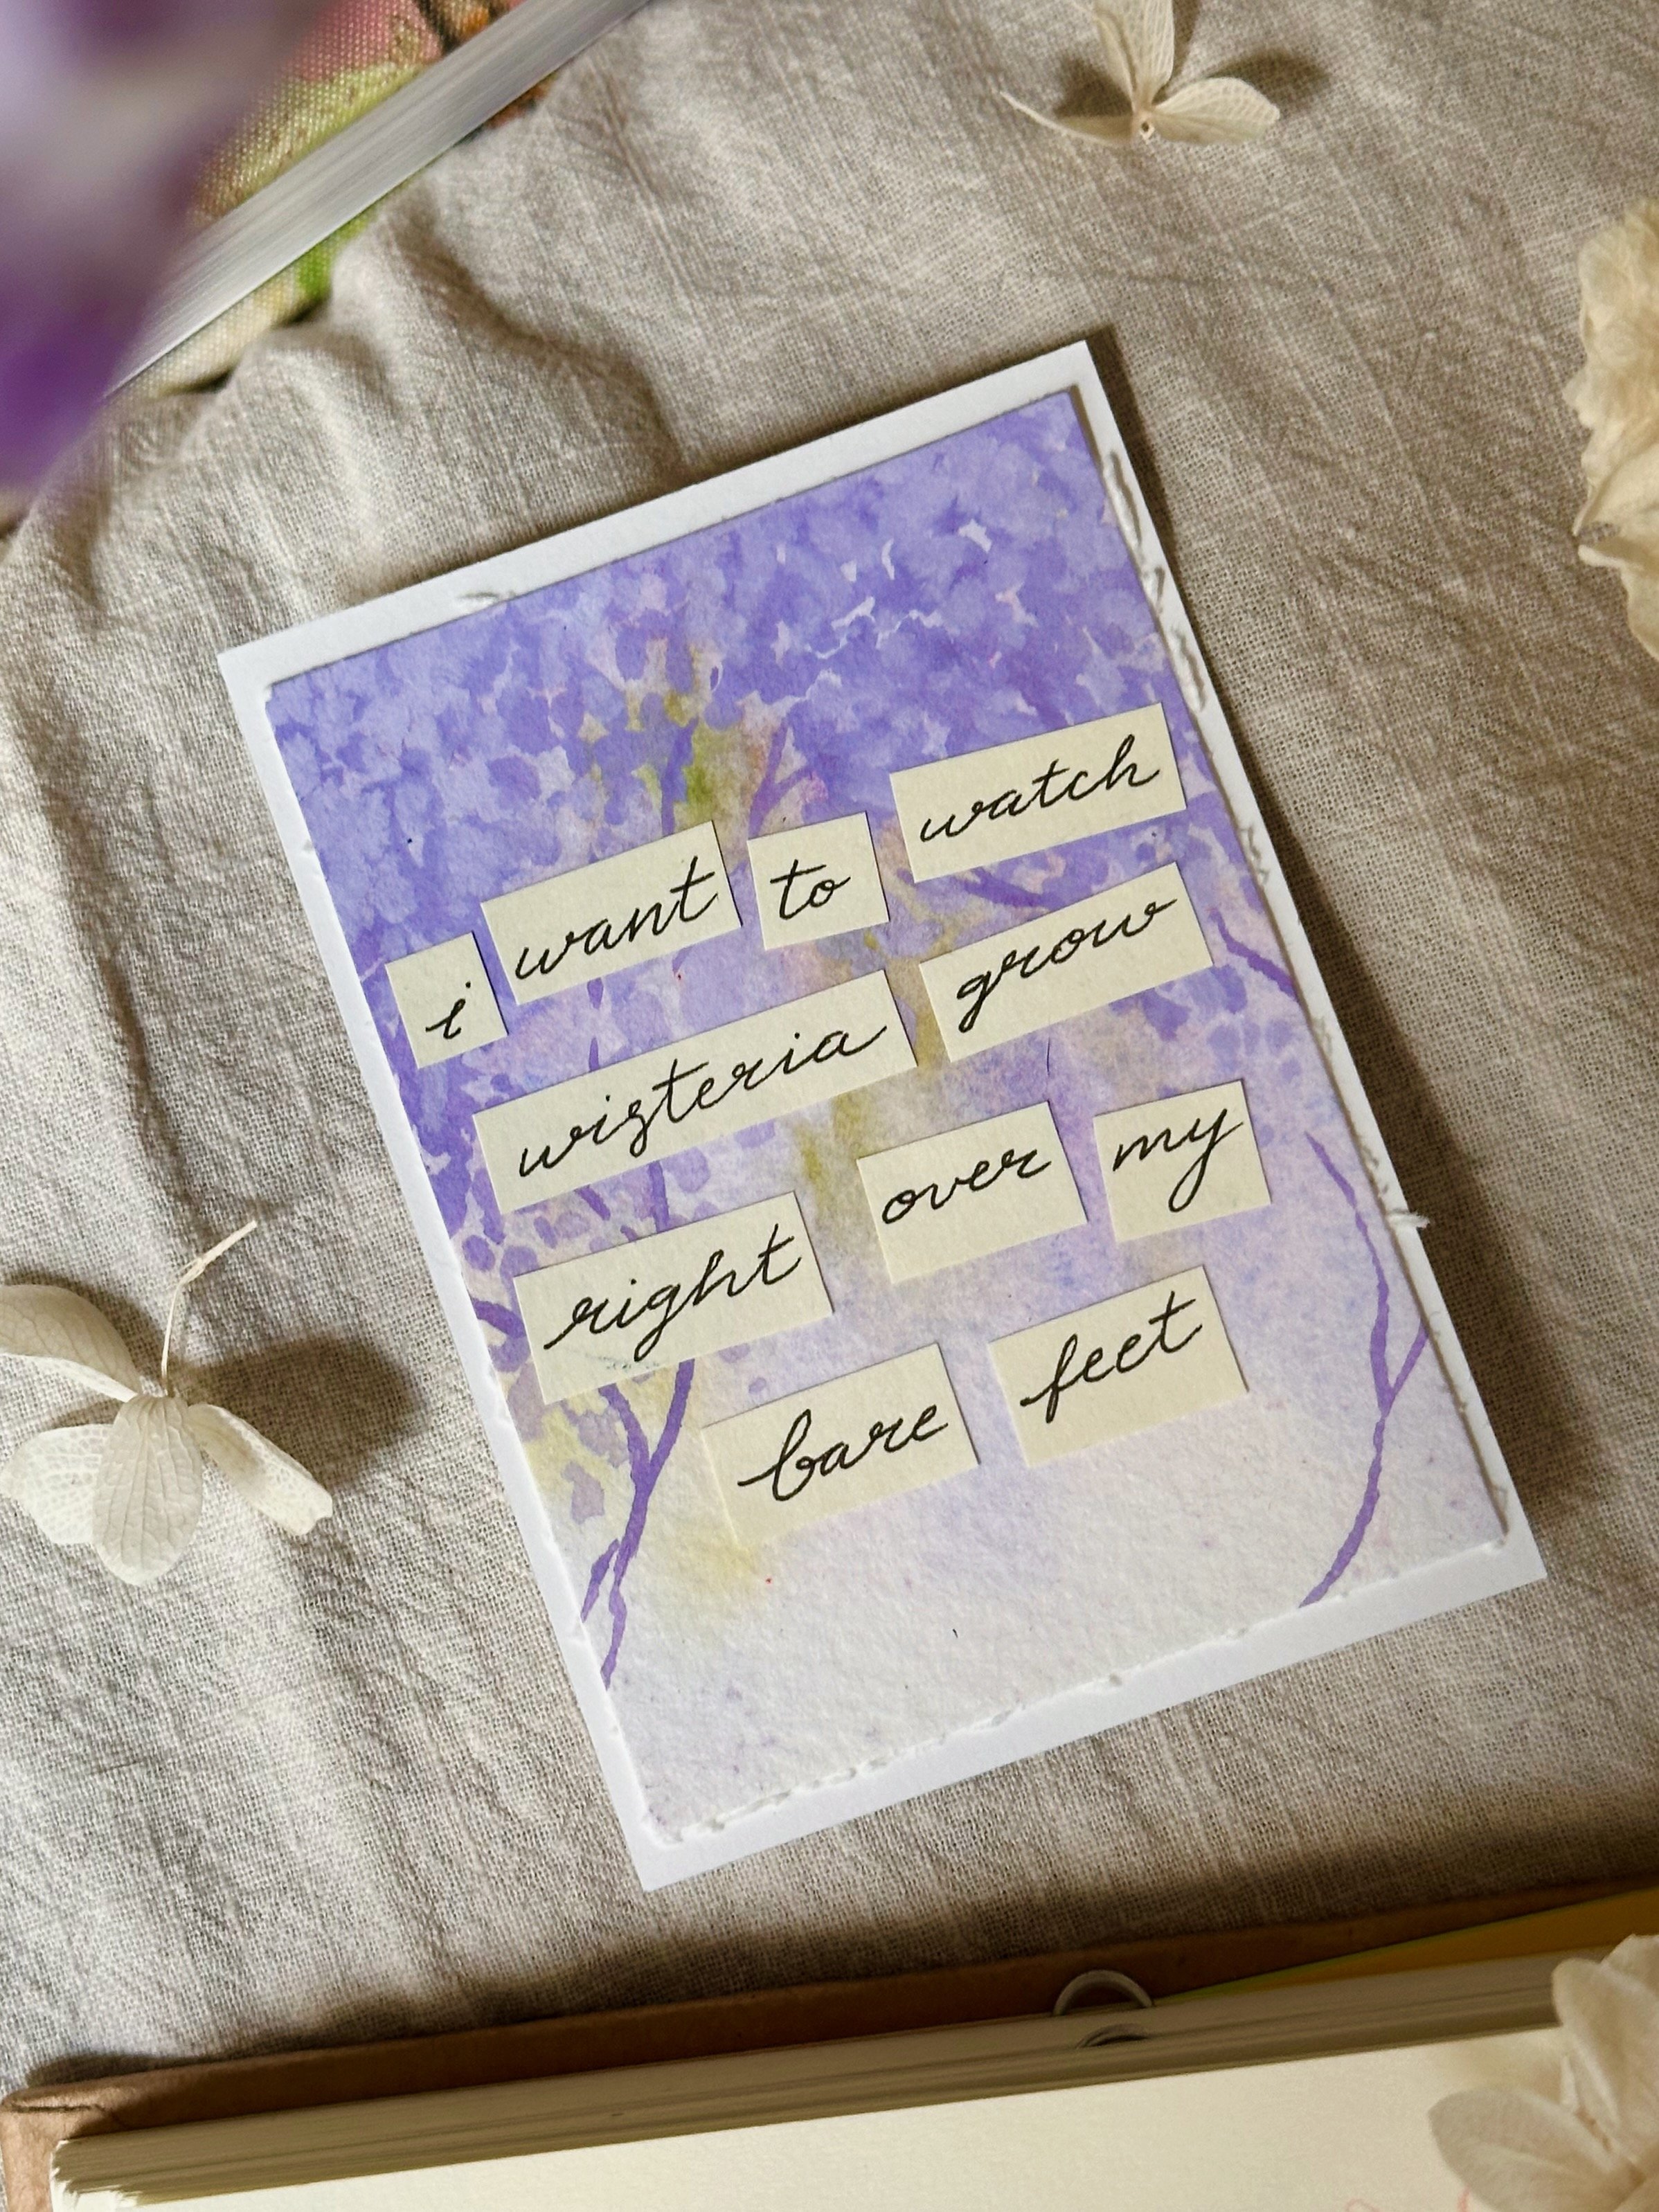 i want to watch
wisteria grow
right over my
bare feet